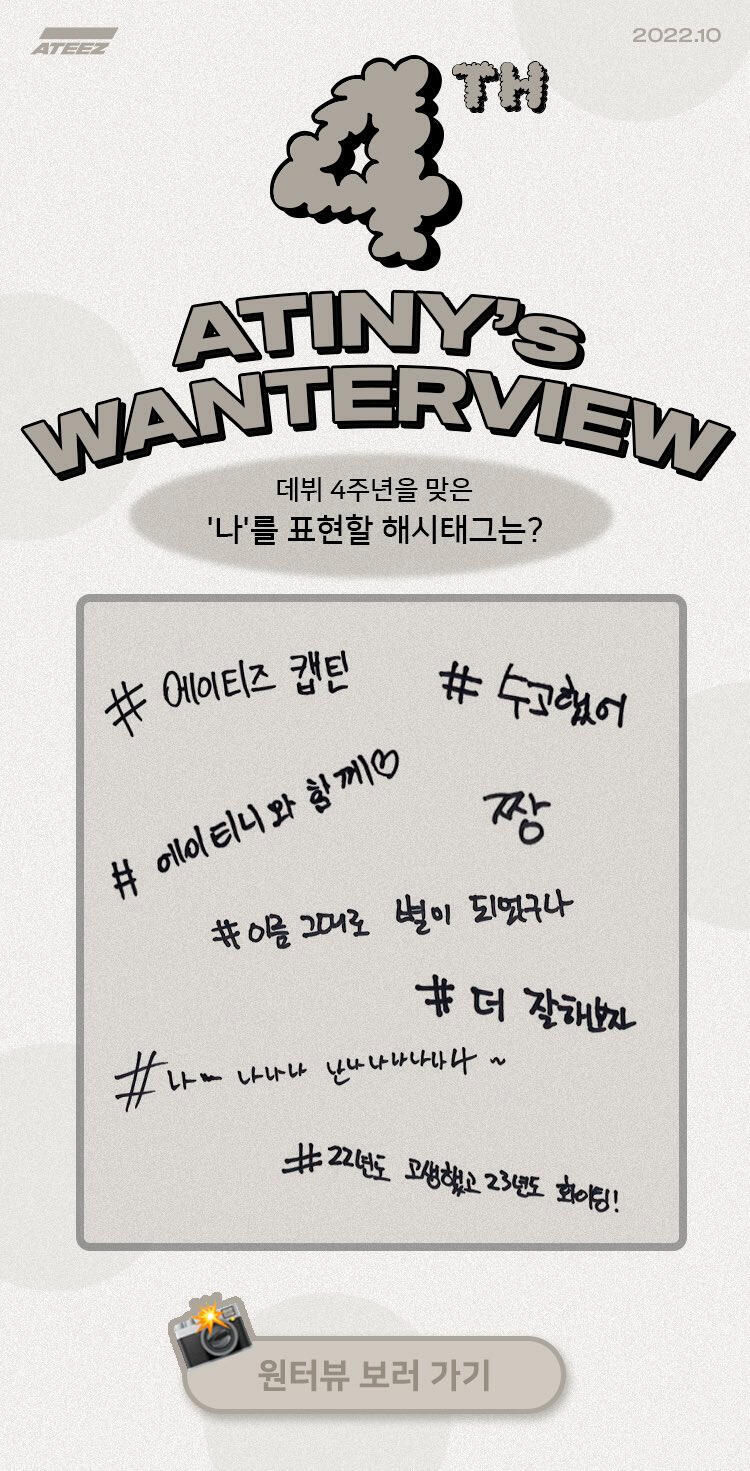 ATEEZ
2022.10
4TH
ATINY's
WANTERVIEW
데뷔 4주년을 맞은
'나'를 표현할 해시태그는?
# 에이티즈 캡틴
# 수고했어
# 에이티니와 함께♡
짱
#이름 그대로 별이 되었구나
# 더 잘해보자
#나~ 나나나 난나나나나나나 ~
#22년도 고생했고 23년도 화이팅!
원터뷰 보러 가기